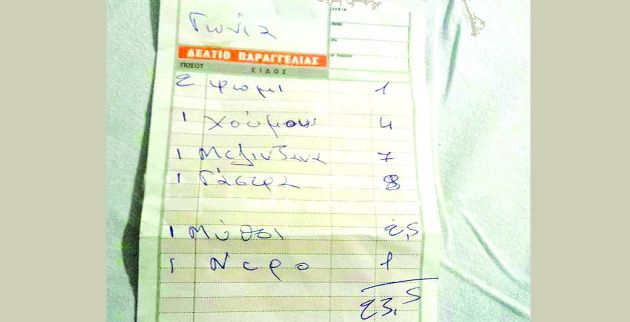 Γωνία
ΔΕΛΤΙΟ ΠΑΡΑΓΓΕΛΙΑΣ
ΠΟΣΟΤ ΕΙΔΟΣ
2 Ψωμί 1
1 Χούμους 4
1 Μελιντζανα 7
1 Γάστρα 8
1 Μύθοι 2,5
1 Νερο 1
23,5